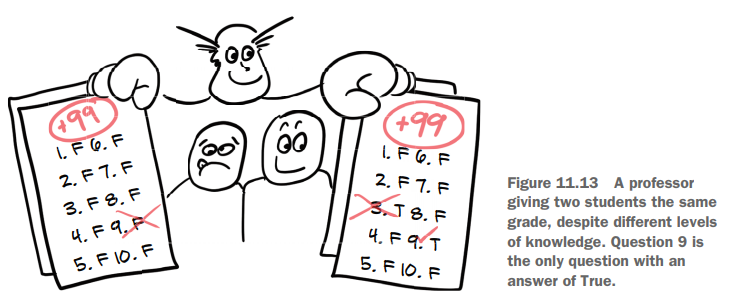 +99
1. F 6. F
2. F 7. F
3. F 8. F
4. F 9. F
5. F 10. F
+99
1. F 6. F
2. F 7. F
3. T 8. F
4. F 9. T
5. F 10. F
Figure 11.13 A professor
giving two students the same
grade, despite different levels
of knowledge. Question 9 is
the only question with an
answer of True.